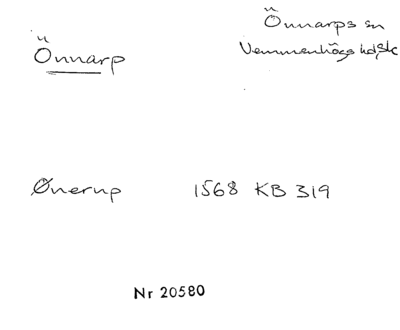 Önnarp
Önnarps sn
Vemmenhögs hd, Sk
Ønerup 1568 KB 319
Nr 20580